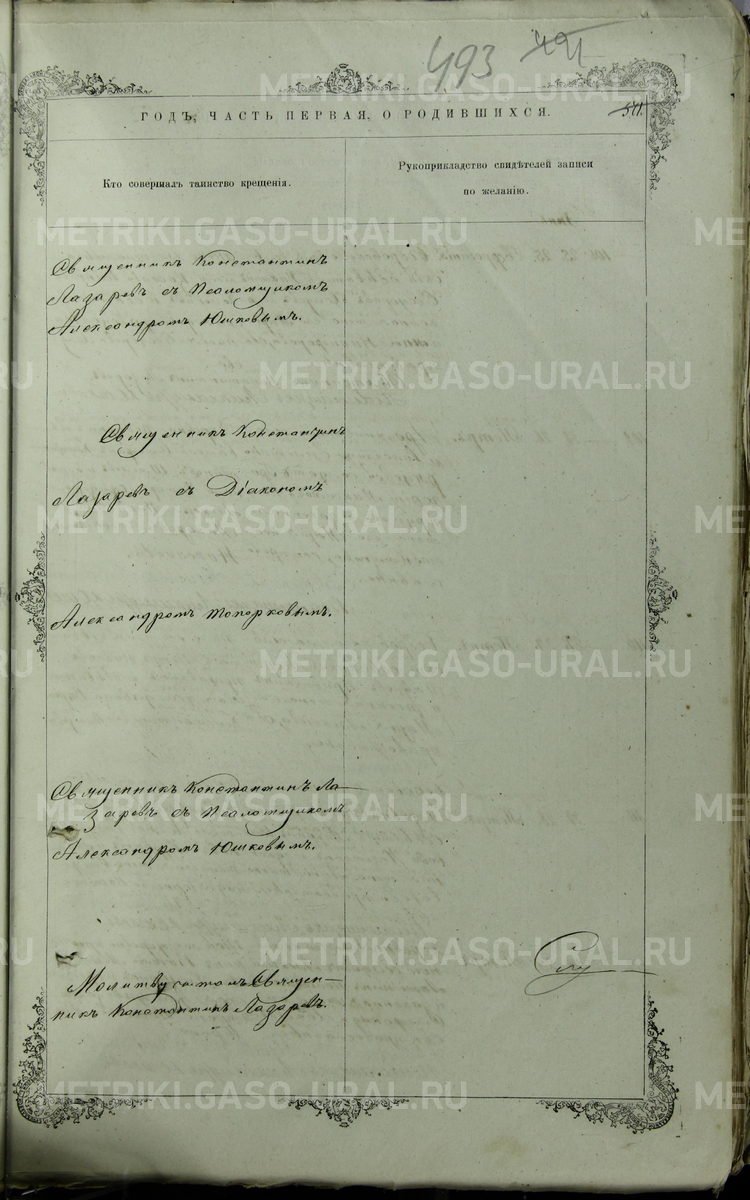 493 491
ГОДЪ, ЧАСТЬ ПЕРВАЯ, О РОДИВШИХСЯ.
511.
Кто совершалъ таинство крещенія.
Рукоприкладство свидѣтелей записи
по желанію.
Священникъ Константинъ
Лазаревъ съ Псаломщикомъ
Александромъ Юшковымъ.
Священникъ Константинъ
Лазаревъ съ Діакономъ
Александромъ Топорковымъ.
Священникъ Константинъ Ла-
заревъ съ Псаломщикомъ
Александромъ Юшковымъ.
Молитву читалъ Священ-
никъ Константинъ Лазаревъ.
METRIKI.GASO-URAL.RU